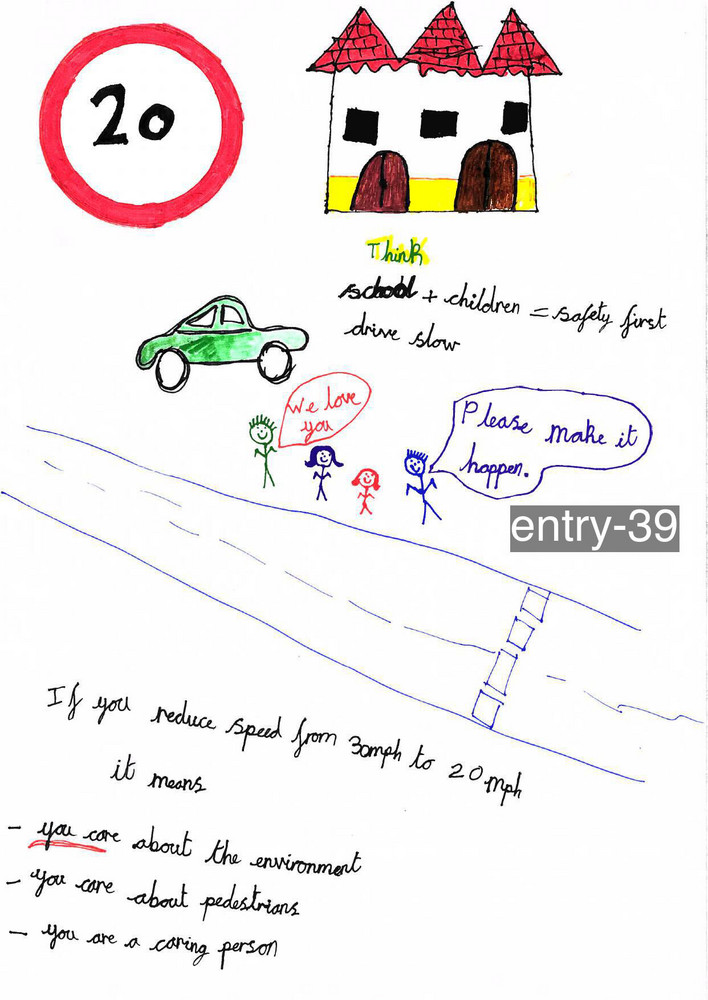 20
Think
school + children = safety first
drive slow
We love
you
Please make it
happen.
entry-39
If you reduce speed from 30mph to 20 mph
it means
- you care about the environment
- you care about pedestrians
- you are a caring person